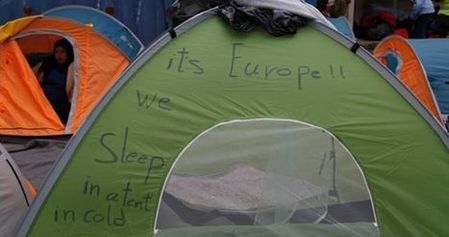 its Europe!!
we
Sleep
in a tent
in cold